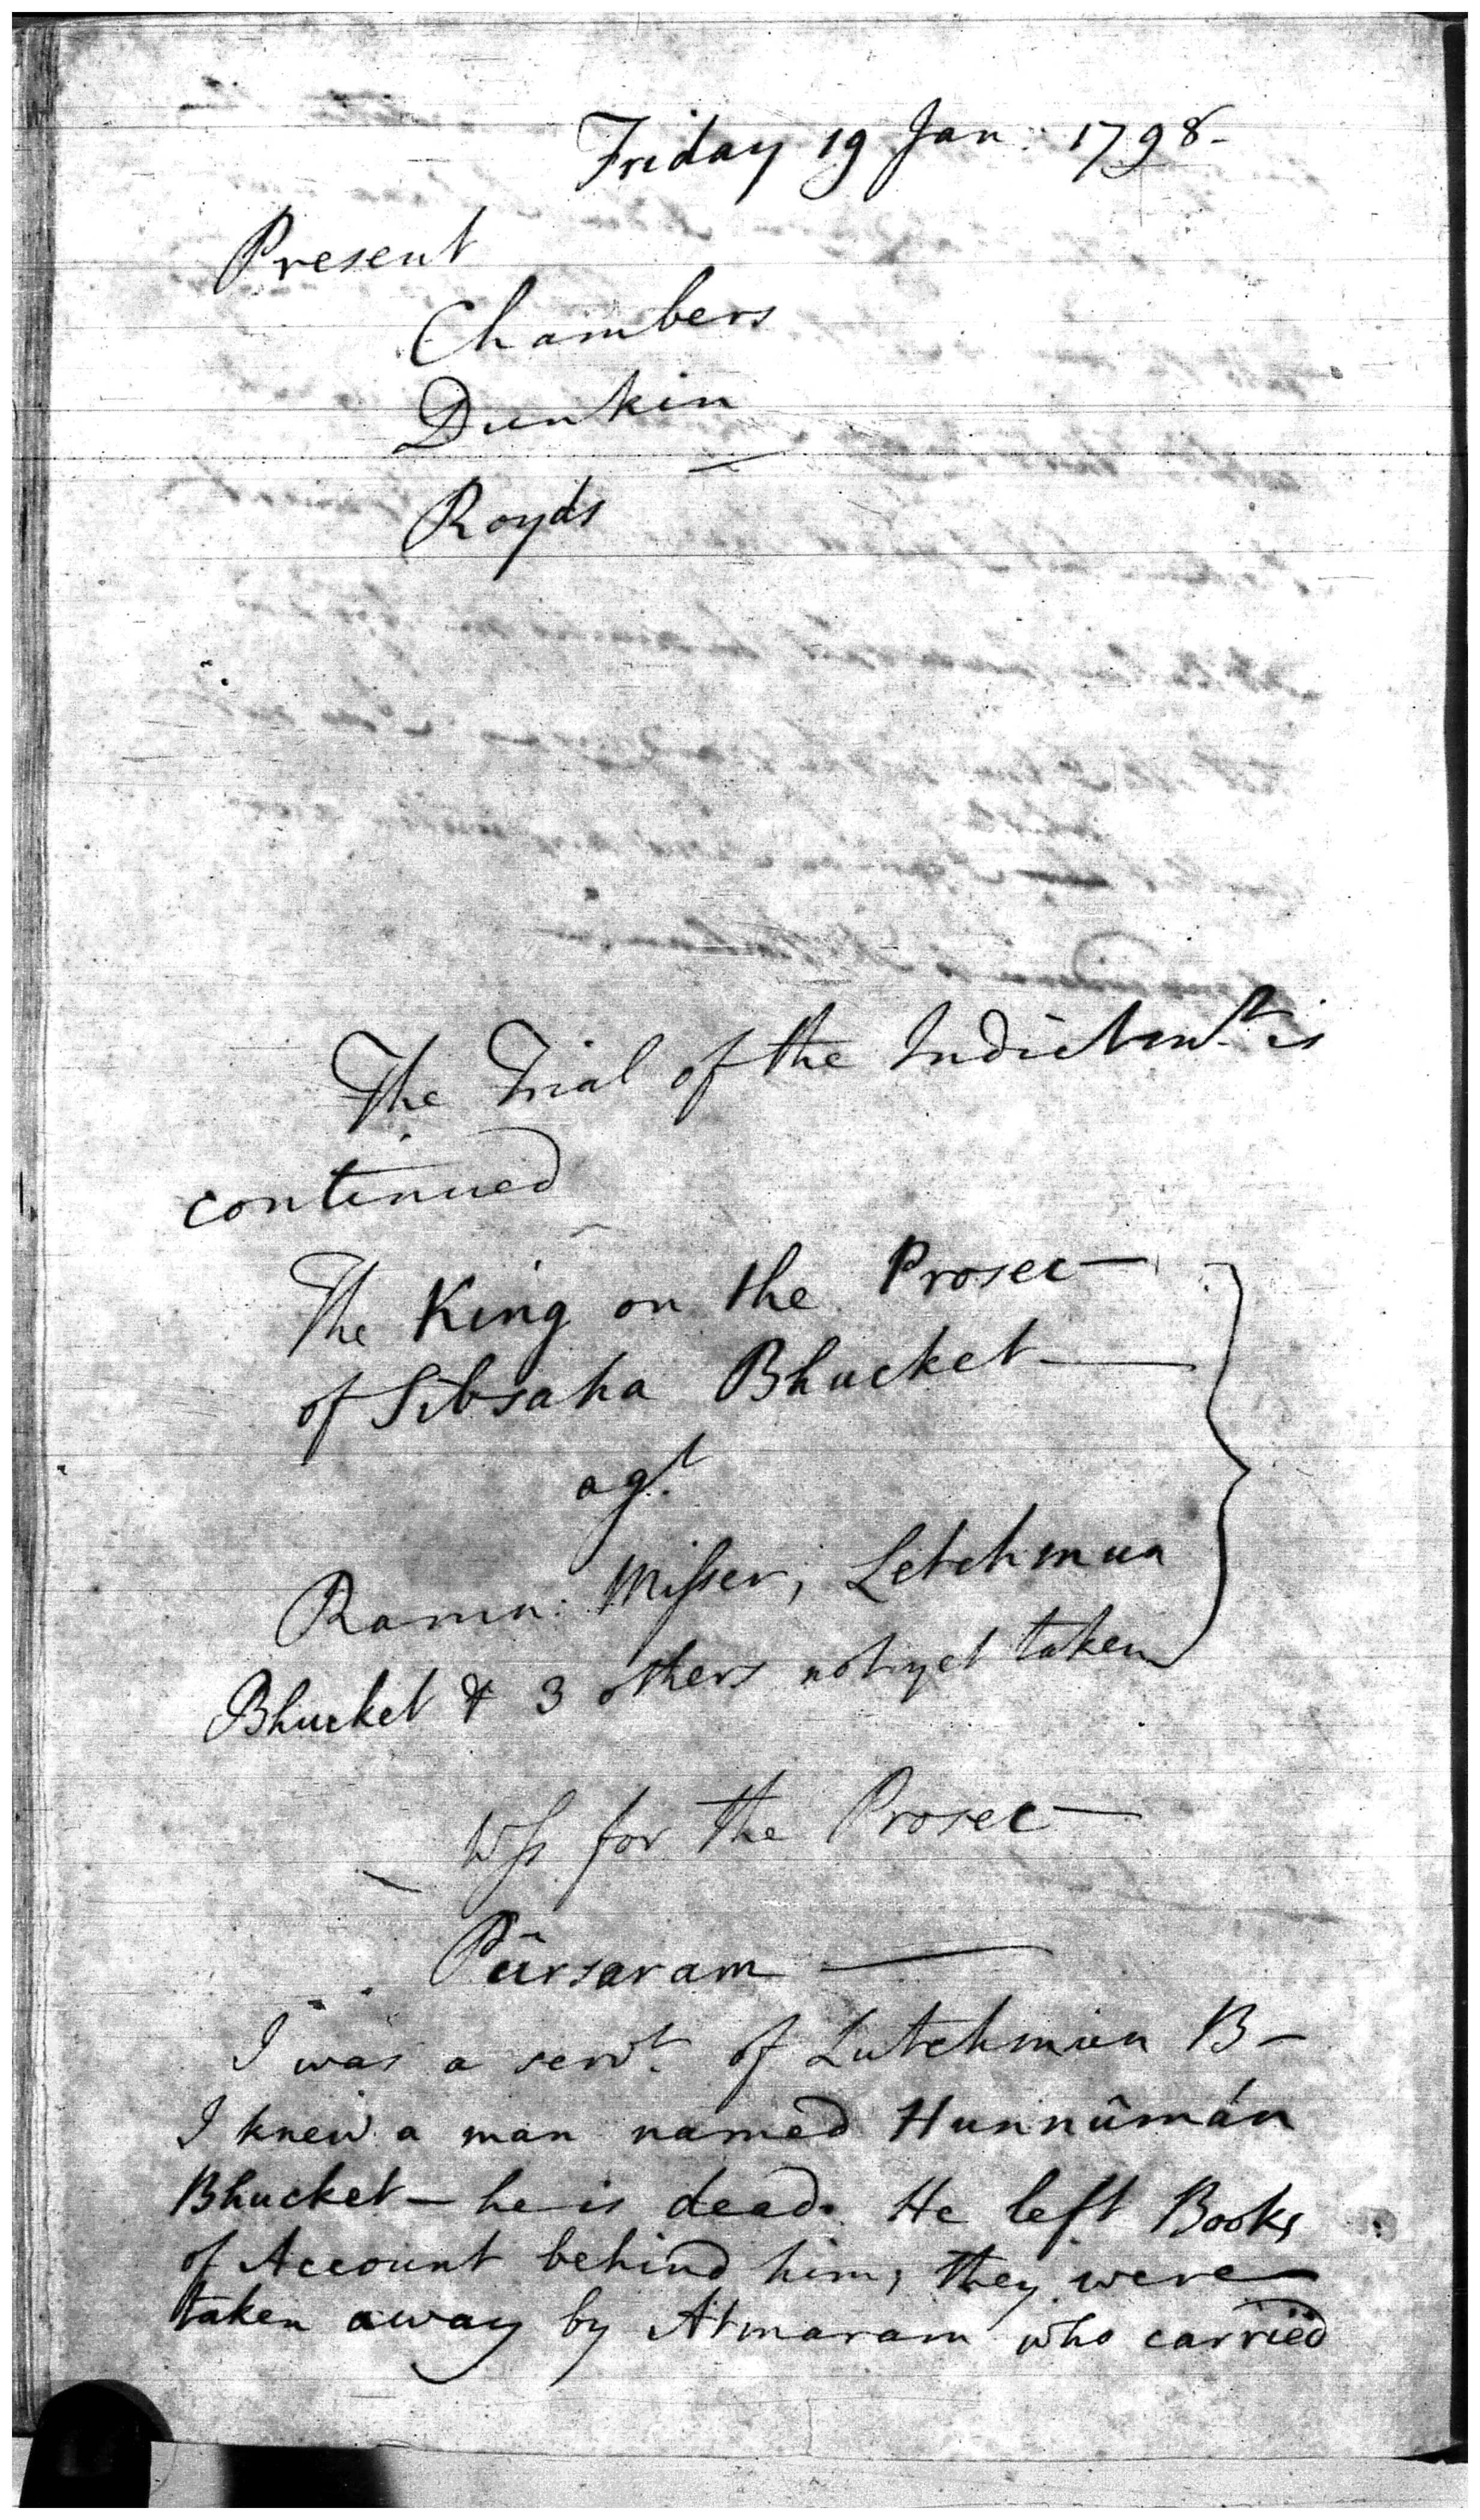 Friday 19 Jan: 1798-
Present
Chambers
Dunkin
Royds
The Trial of the Indictmt. is
continued
The King on the Prosec—
of Sibsaha Bhucket—
agt.
Ramn: Misser, Letchmun
Bhucket & 3 others not yet taken
Wss for the Prosec—
Pûrsaram—
I was a servt. of Lutchmun B-
I knew a man named Hunnûmán
Bhucket - he is dead. He left Books
of Account behind him; they were
taken away by Atmaram who carried